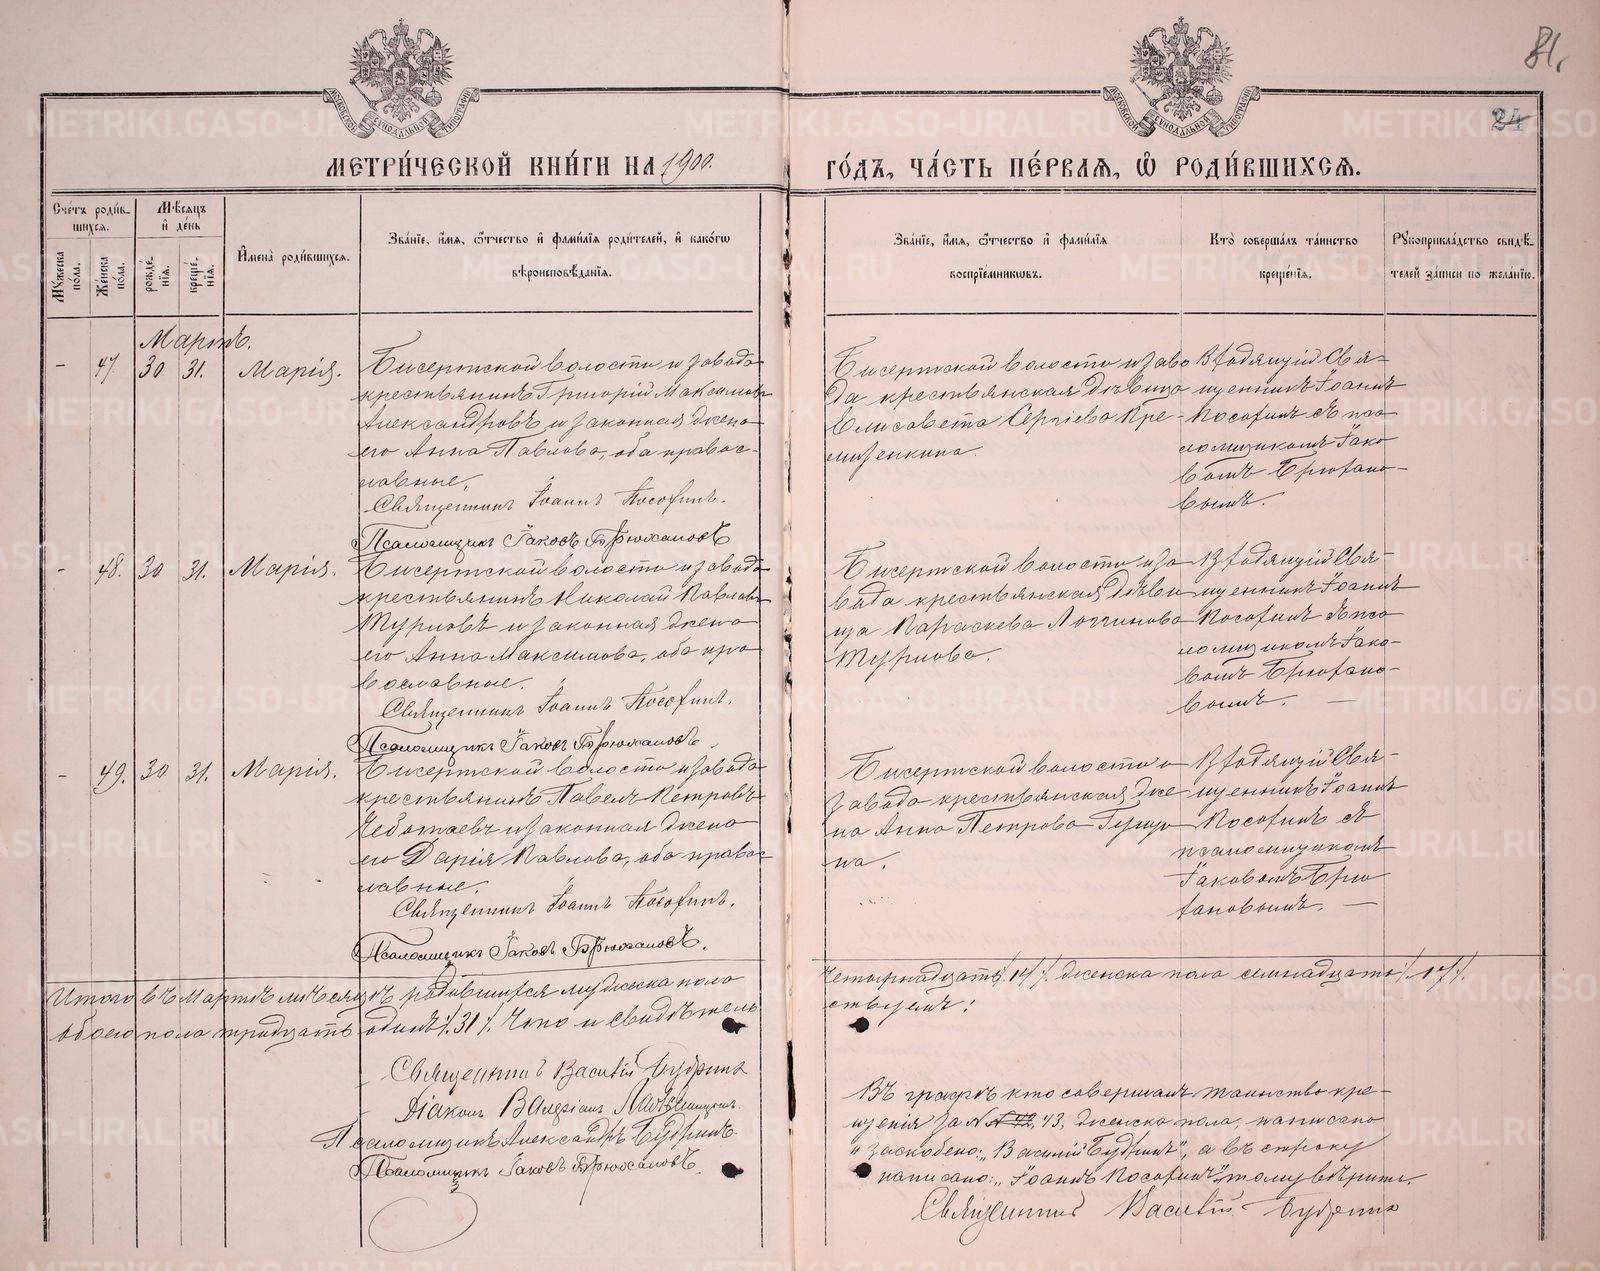 81.
24
МЕТРИ́ЧЕСКОЙ КНИ́ГИ НА 1900.
ГО́ДЪ, ЧА́СТЬ ПЕ́РВАѦ, Ѡ҆ РОДИ́ВШИХСѦ.
Сче́тъ роди́в-
шихсѧ.
Мѣ́сѧцъ
и҆ де́нь
Му́жеска
по́ла.
Же́нска
по́ла.
рожде́-
нїѧ.
креще́-
нїѧ.
И҆мена̀ роди́вшихсѧ.
Зва́нїе, и҆́мѧ, ѻ҆́тчество и҆ фами́лїѧ роди́телей, и҆ како́гѡ
вѣроисповѣ́данїѧ.
Зва́нїе, и҆́мѧ, ѻ҆́тчество и҆ фами́лїѧ
воспрїе́мниковъ.
Кто̀ соверша́лъ та́инство
креще́нїѧ.
Рꙋкоприкла́дство свидѣ́-
телей за́писи по жела́нїю.
Мартъ.
- 47 30 31. Марія.
Бисертской волости и завода
крестьянинъ Григорій Максимовъ
Александровъ и законная жена
его Анна Павлова, оба правос-
лавные.
Священникъ Іоаннъ Посохинъ.
Псаломщикъ Іаковъ Брюхановъ
Бисертской волости и заво
да крестьянская дѣвица
Елисавета Сергіева Кре-
мизенкина.
Входящій Свя-
щенникъ Іоаннъ
Посохинъ съ пса
ломщикомъ Іако
вомъ Брюхано-
вымъ.
- 48. 30 31. Марія.
Бисертской волости и завода
крестьянинъ Николай Павловъ
Турновъ и законная жена
его Анна Максимова, оба пра
вославные.
Священникъ Іоаннъ Посохинъ.
Псаломщикъ Іаковъ Брюхановъ.
Бисертской волости и за
вода крестьянская дѣви
ца Параскева Логгинова
Турнова.
Входящій Свя-
щенникъ Іоаннъ
Посохинъ съ пса
ломщикомъ Іако-
вомъ Брюхано-
вымъ. —
- 49. 30 31. Марія.
Бисертской волости и завода
крестьянинъ Павелъ Петровъ
Чеботаевъ и законная жена
его Дарія Павлова, оба правос-
лавные.
Священникъ Іоаннъ Посохинъ.
Псаломщикъ Іаковъ Брюхановъ.
Бисертской волости и
завода крестьянская же
на Анна Петрова
на.
Входящій Свя-
щенникъ Іоаннъ
Посохинъ съ
псаломщикомъ
Іаковомъ Брю
хановымъ. —
Итого въ Мартѣ мѣсяцѣ родившихся мужеска пола
четырнадцать /. 14 /. женска пола семнадцать /. 17 /.
обоего пола тридцать одинъ /. 31 /. Что и свидѣтель
ствуемъ:
Священникъ Василій Будринъ
Діаконъ Валеріанъ
Псаломщикъ Александръ Будринъ.
Псаломщикъ Іаковъ Брюхановъ.
Въ графѣ кто совершалъ таинство кре-
щенія за № 42, 43, женска пола, написано
и заскоблено: „Василій Будринъ", а въ строку
написано: „Іоаннъ Посохинъ", тому вѣрить.
Священникъ Василій Будринъ